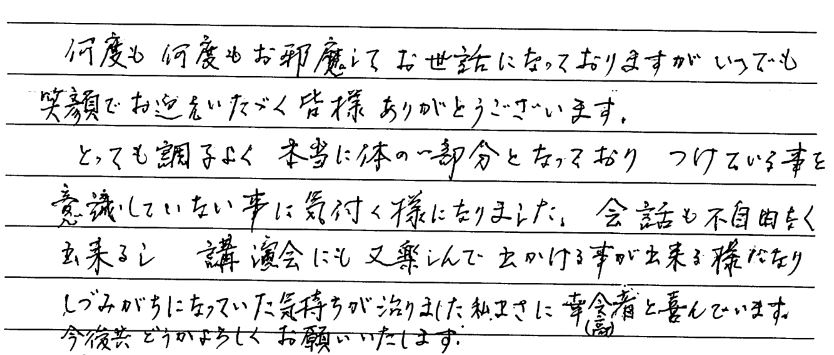 何度も何度もお邪魔してお世話になっておりますがいつでも
笑顔でお迎えいただく皆様ありがとうございます。
とっても調子よく 本当に体の一部分となっており つけている事を
意識していない事に気付く様になりました。会話も不自由なく
出来るし 講演会にも又楽しんで出かける事が出来る様になり
しづみがちになっていた気持ちが治りました私まさに幸会者と喜んでいます。
(高)
今後共どうかよろしくお願いいたします。